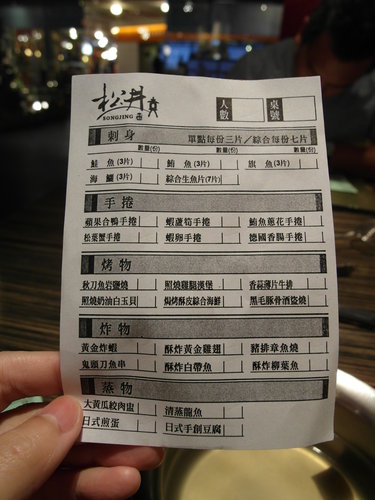 松井
SONGJING
人數
桌號
刺身 單點每份三片/綜合每份七片
數量(份) 數量(份) 數量(份)
鮭 魚(3片) 鮪 魚(3片) 旗 魚(3片)
海 鱺(3片) 綜合生魚片(7片)
手捲
蘋果合鴨手捲 蝦蘆筍手捲 鮪魚蔥花手捲
松葉蟹手捲 蝦卵手捲 德國香腸手捲
烤物
秋刀魚岩鹽燒 照燒雞腿漢堡 香蒜薄片牛排
照燒奶油白玉貝 焗烤酥皮綜合海鮮 黑毛豚骨酒盜燒
炸物
黃金炸蝦 酥炸黃金雞翅 豬排章魚燒
鬼頭刀魚串 酥炸白帶魚 酥炸柳葉魚
蒸物
大黃瓜絞肉盅 清蒸龍魚
日式煎蛋 日式手創豆腐